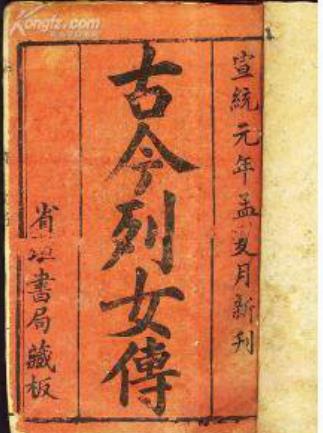 宣統元年孟夏月新刊
古今列女傳
省垣書局藏板
Kongfz.com